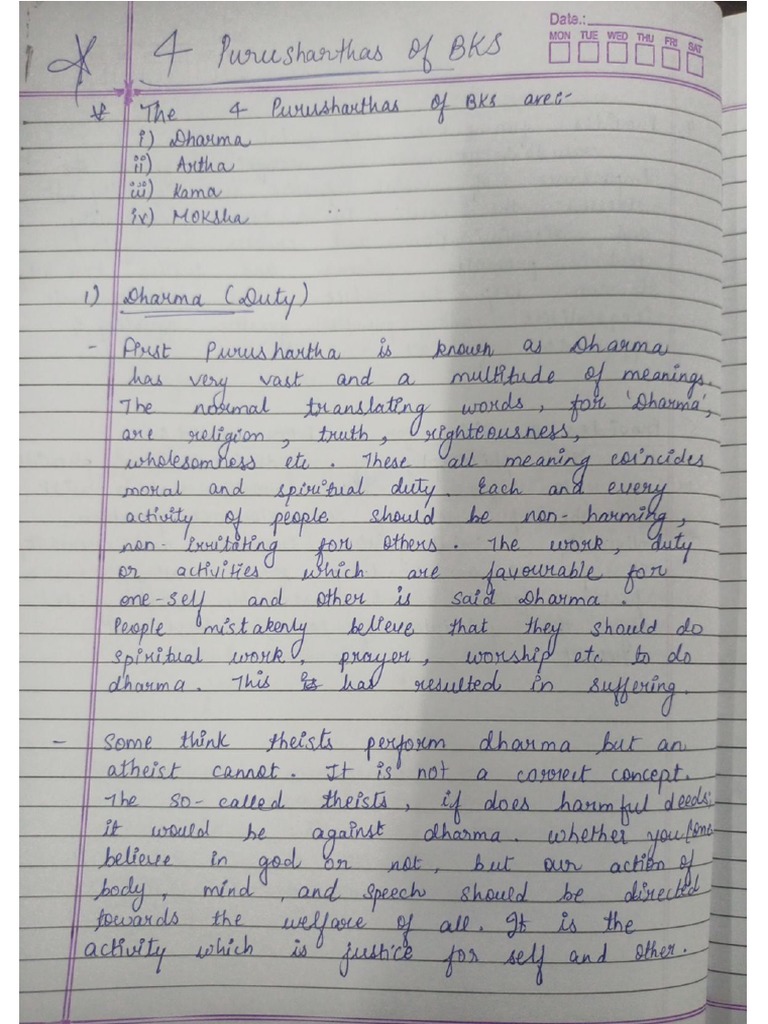 Date.:
MON TUE WED THU FRI SAT
4 Purusharthas of BKS
* The 4 Purusharthas of BKS are:-
i) Dharma
ii) Artha
iii) Kama
iv) Moksha
1) Dharma (Duty)
- First Purushartha is known as Dharma
has very vast and a multitude of meanings.
The normal translating words, for 'Dharma',
are religion, truth, righteousness,
wholesomness etc. These all meaning coincides
moral and spiritual duty. Each and every
activity of people should be non-harming,
non-irritating for others. The work, duty
or activities which are favourable for
one-self and other is said Dharma.
People mistakenly believe that they should do
spiritual work, prayer, worship etc to do
dharma. This has resulted in suffering.
- Some think theists perform dharma but an
atheist cannot. It is not a correct concept.
The so-called theists, if does harmful deeds;
it would be against dharma. Whether you/one
believe in god or not, but our action of
body, mind, and speech should be directed
towards the welfare of all. It is the
activity which is justice for self and other.